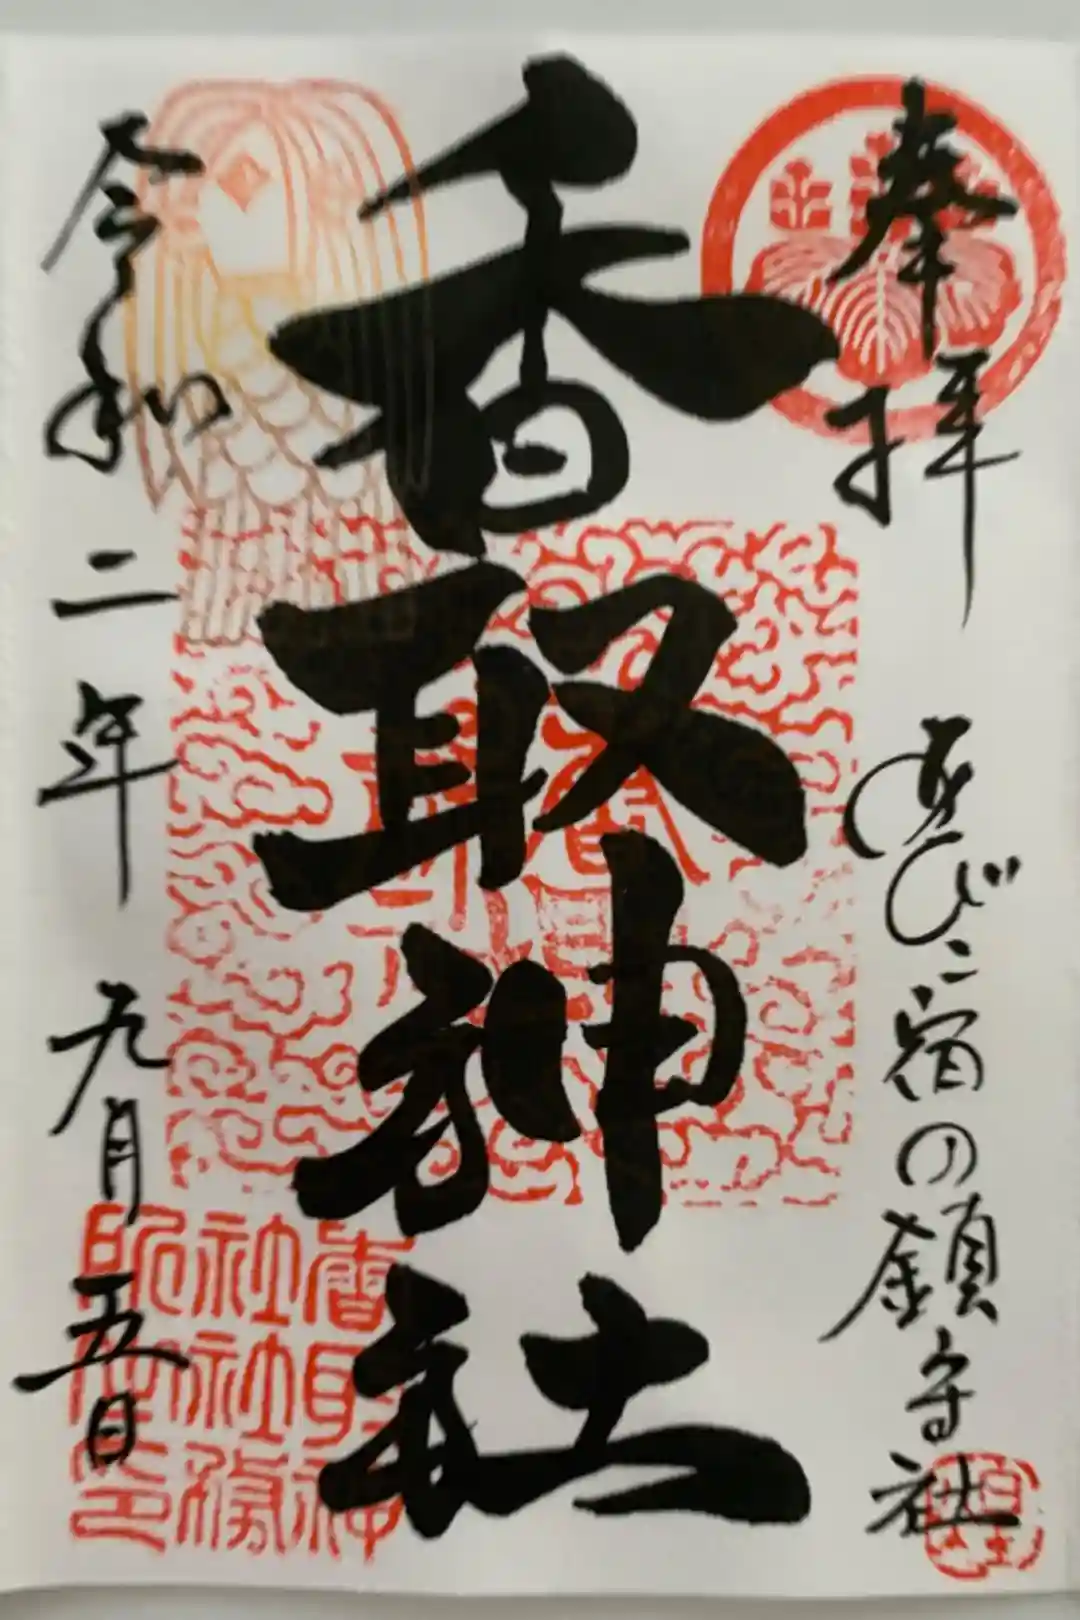 奉拝
あびこ宿の鎮守社
香取神社
令和二年九月五日
香取神
社社務